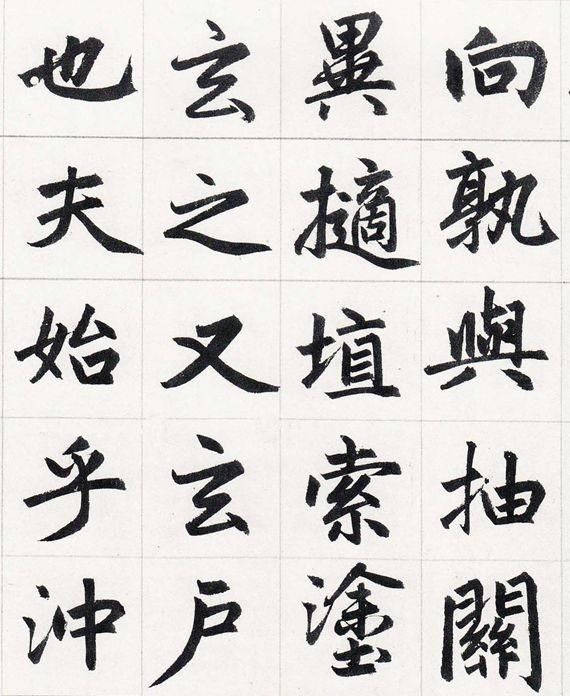 向孰與抽關
異擿埴索塗
玄之又玄户
也夫始乎沖